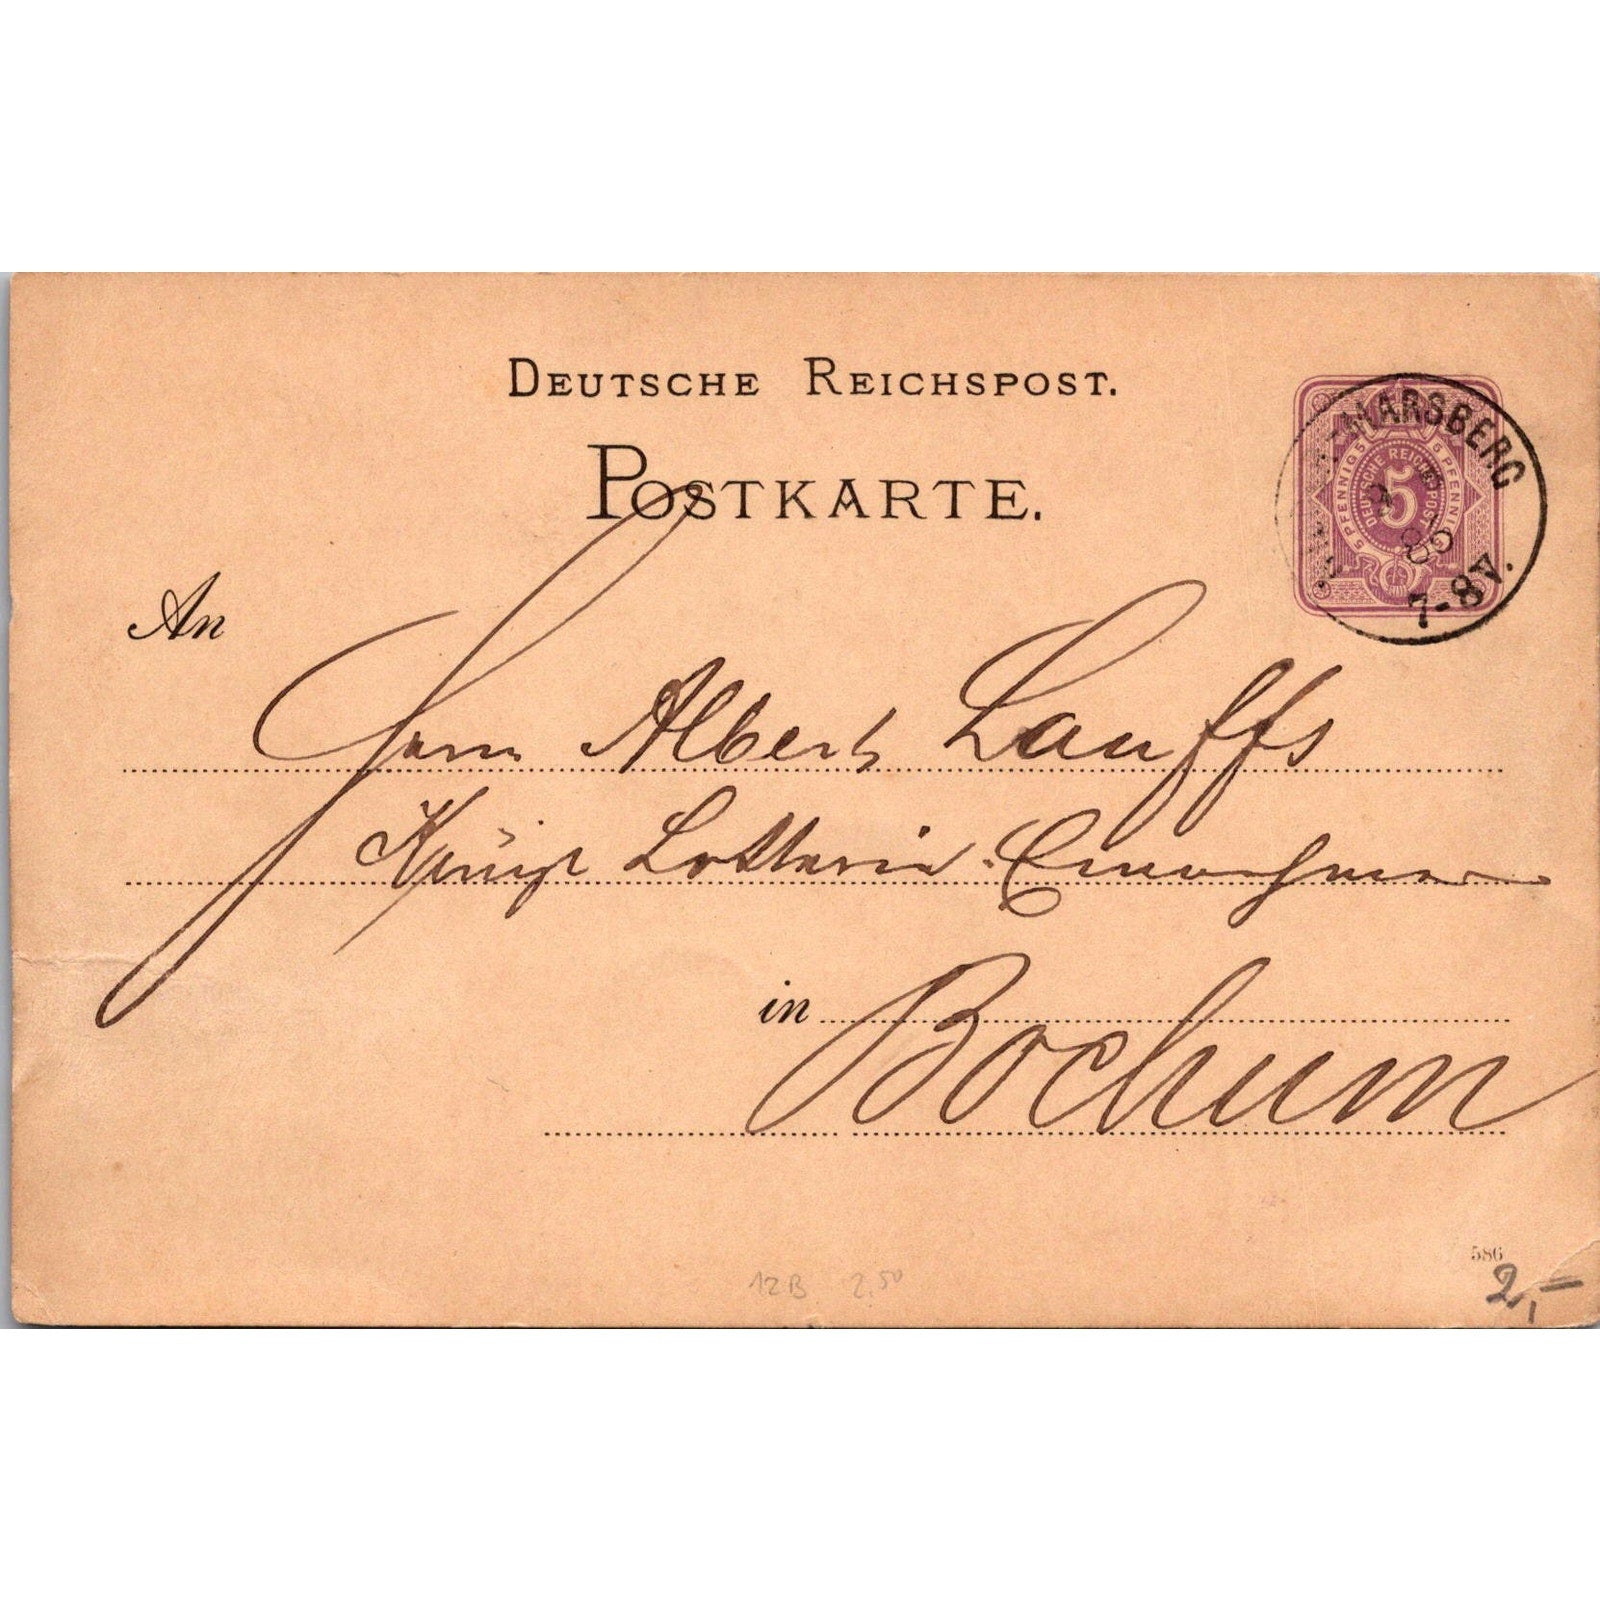 DEUTSCHE REICHSPOST.
POSTKARTE.
5 PFENNIG 5 5 PFENNIG
DEUTSCHE REICHSPOST
5
MARSBERG
86
7-8V.
An
Herrn Albert Lauffs
Königl Lotterie-Einnehmer
in Bochum
586
12B 2.50
2,=